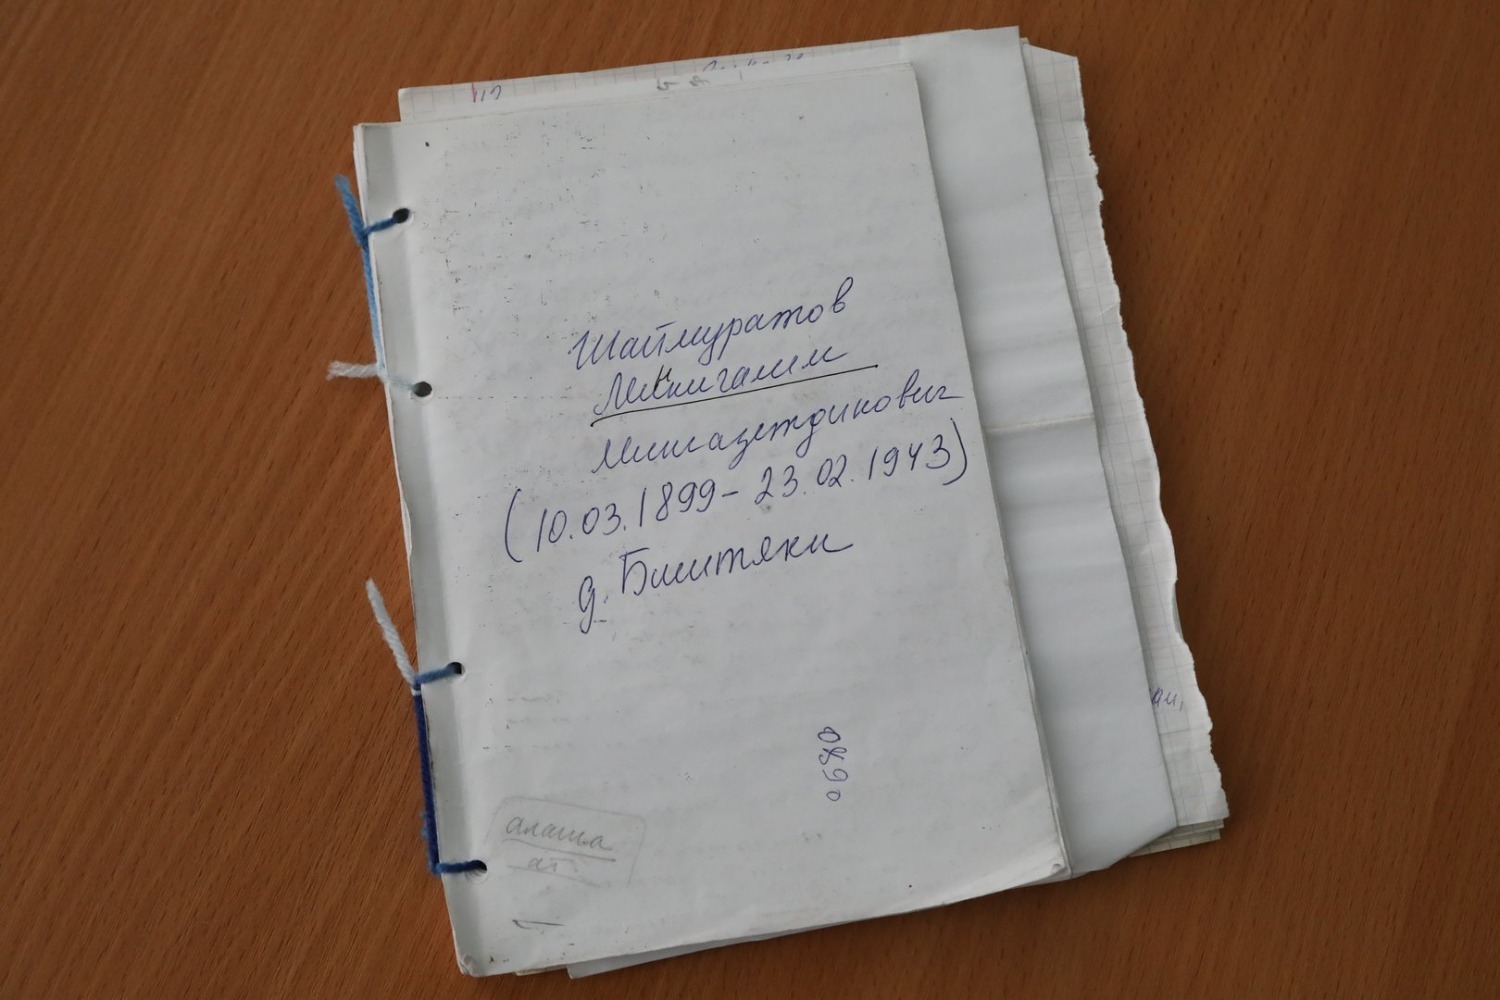 Шаймуратов
Миннигалим
Мингазетдинович
(10.03.1899 - 23.02.1943)
д. Биштяки
алаша
ат